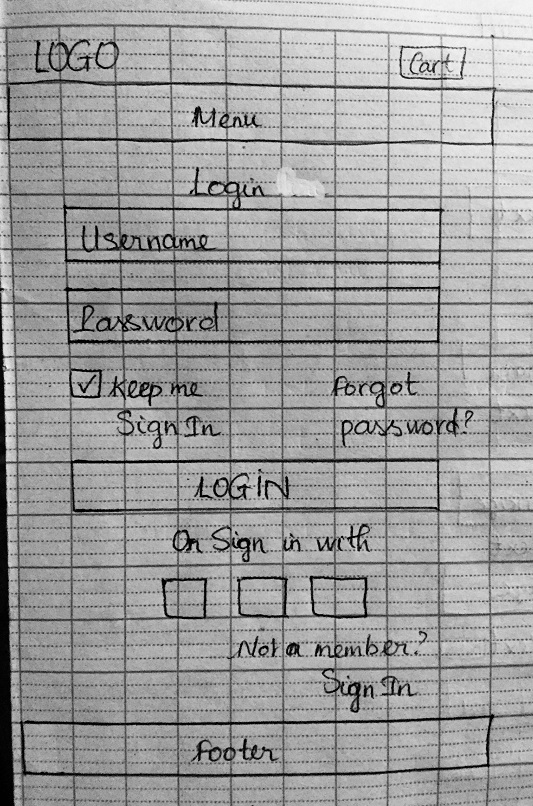 LOGO Cart
Menu
Login
Username
Password
Keep me Forgot
Sign In password?
LOGIN
Or Sign in with
Not a member?
Sign In
Footer